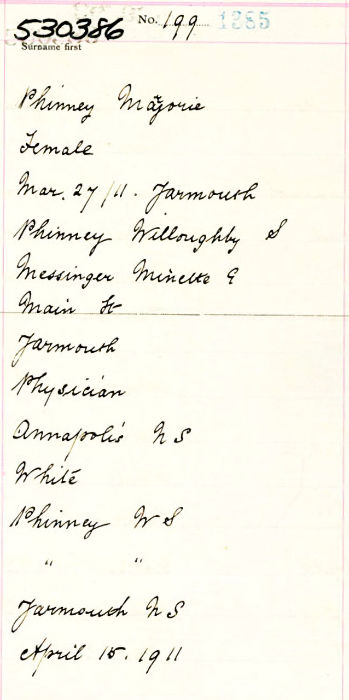 530386 No. 199 1385
Surname first
Phinney Marjorie
Female
Mar. 27/11. Yarmouth
Phinney Willoughby S
Messinger Minette E
Main St
Yarmouth
Physician
Annapolis N S
White
Phinney W S
" "
Yarmouth N S
April 15. 1911